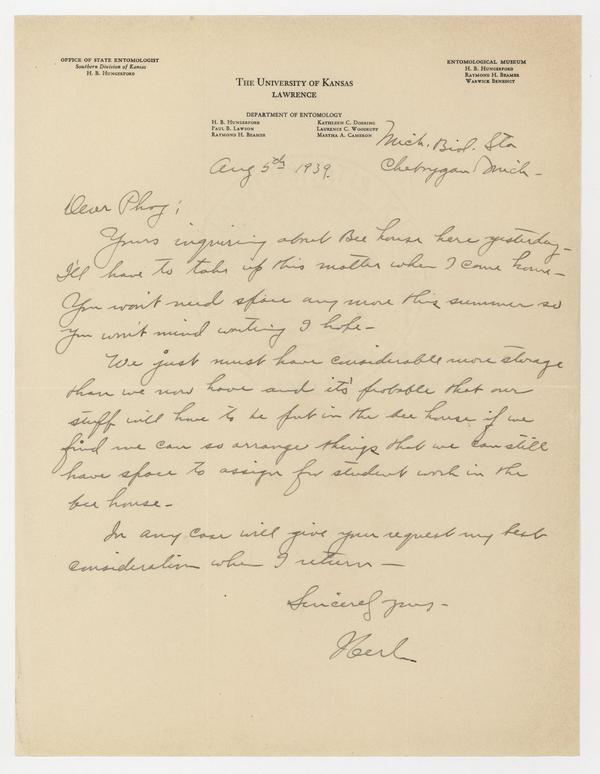 OFFICE OF STATE ENTOMOLOGIST
Southern Division of Kansas
H. B. HUNGERFORD
ENTOMOLOGICAL MUSEUM
H. B. HUNGERFORD
RAYMOND H. BEAMER
WARWICK BENEDICT
THE UNIVERSITY OF KANSAS
LAWRENCE
DEPARTMENT OF ENTOMOLOGY
H. B. HUNGERFORD
PAUL B. LAWSON
RAYMOND H. BEAMER
KATHLEEN C. DOERING
LAURENCE C. WOODRUFF
MARTHA A. CAMERON
Mich. Biol. Sta
Cheboygan Mich-
Aug 5th 1939.
Dear Phog;
Yours inquiring about Bee house here yesterday-
I'll have to take up this matter when I come home-
You won't need space any more this summer so
you won't mind waiting I hope-
We just must have considerable more storage
than we now have and it's probable that our
stuff will have to be put in the bee house if we
find we can so arrange things that we can still
have space to assign for student work in the
bee house-
In any case will give your request my best
consideration when I return-
Sincerely yours-